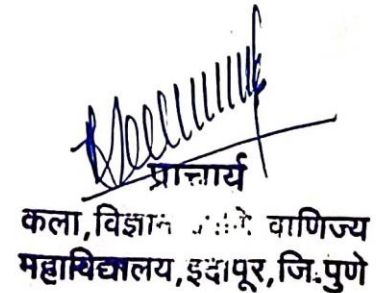 प्राचार्य
कला, विज्ञान वाणिज्य
महाविद्यालय, इंदापूर, जि. पुणे